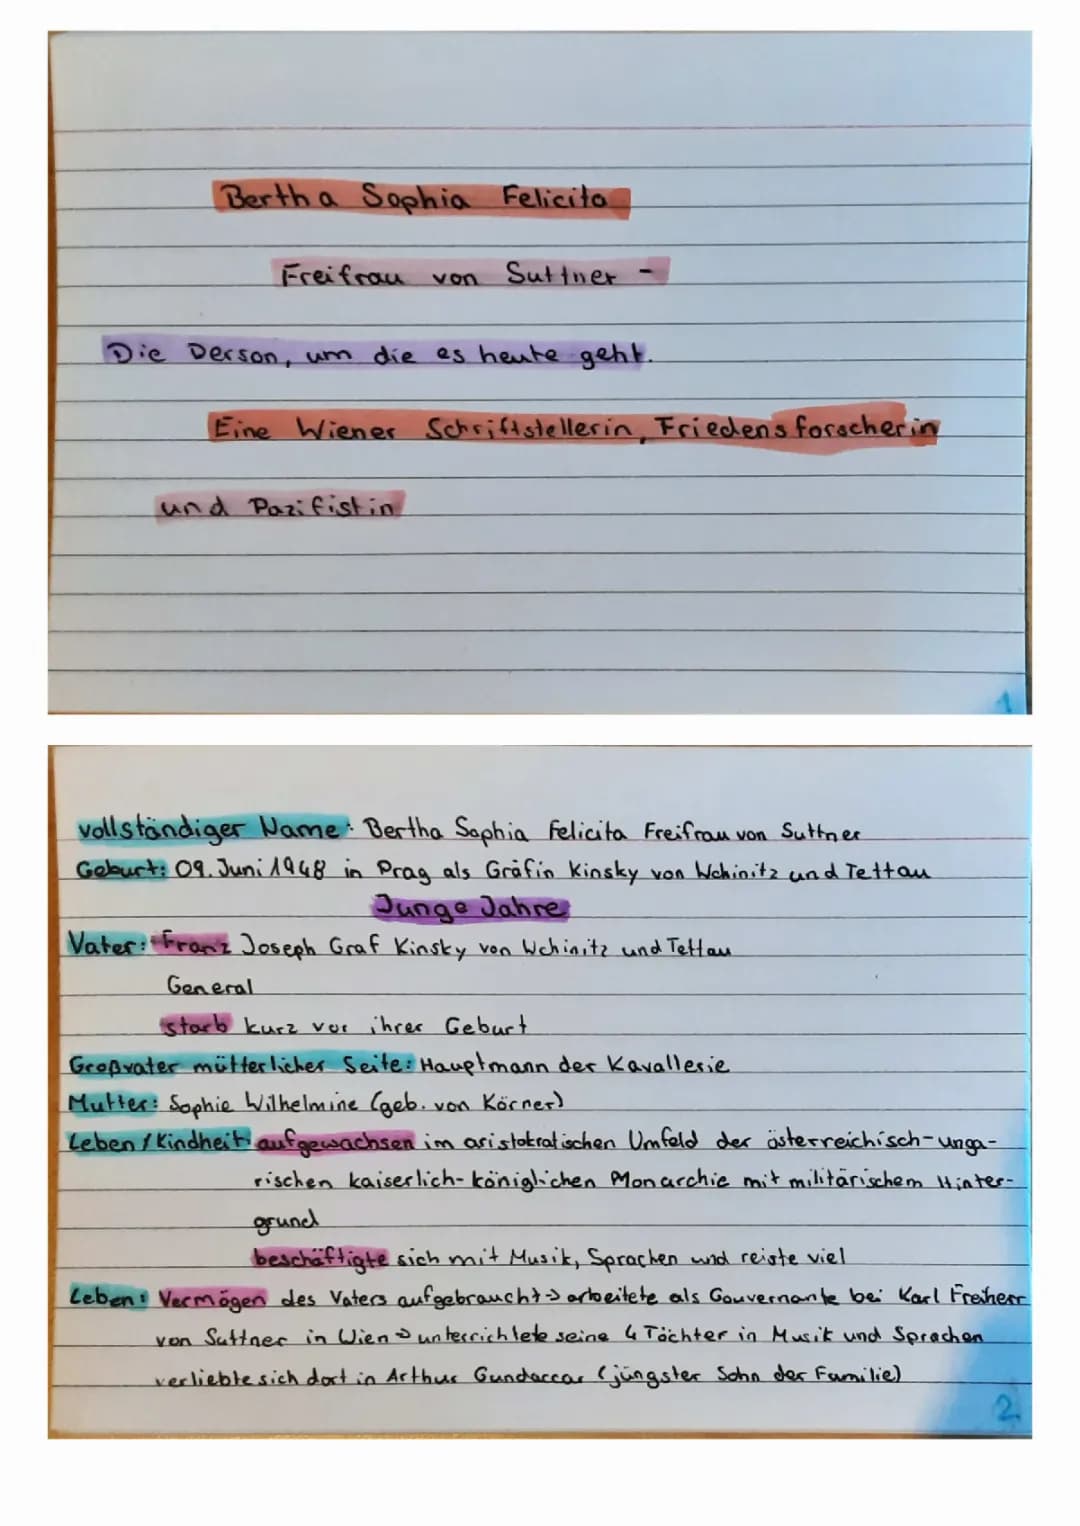 Bertha Sophia Felicita
Freifrau von Suttner -
Die Person, um die es heute geht.
Eine Wiener Schriftstellerin, Friedensforscherin
und Pazifistin
1
vollständiger Name: Bertha Sophia Felicita Freifrau von Suttner
Geburt: 09. Juni 1948 in Prag als Gräfin Kinsky von Wchinitz und Tettau
Junge Jahre
Vater: Franz Joseph Graf Kinsky von Wchinitz und Tettau
General
starb kurz vor ihrer Geburt
Großvater mütterlicher Seite: Hauptmann der Kavallerie
Mutter: Sophie Wilhelmine (geb. von Körner)
Leben/Kindheit: aufgewachsen im aristokratischen Umfeld der österreichisch-unga-
rischen kaiserlich-königlichen Monarchie mit militärischem Hinter-
grund
beschäftigte sich mit Musik, Sprachen und reiste viel
Leben: Vermögen des Vaters aufgebraucht → arbeitete als Gouvernante bei Karl Freiherr
von Suttner in Wien → unterrichtete seine 4 Töchter in Musik und Sprachen
verliebte sich dort in Arthur Gundaccar (jüngster Sohn der Familie)
2